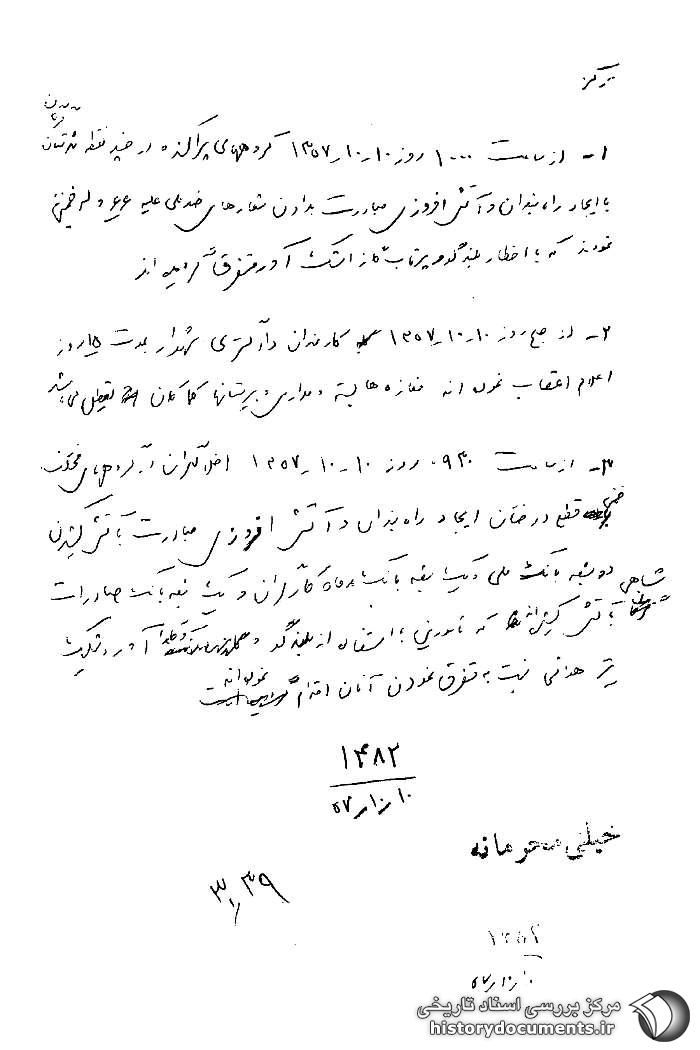 مرکز
۱- از ساعت ۱۰۰۰ روز ۱۰-۱۰-۱۳۵۷ گروههای پراکنده در چند نقطه
با ایجاد راه‌بندان و آتش افروزی مبادرت بدادن شعارهای ضد ملی علیه و له خمینی
نمودند که با اخطار بلندگو و پرتاب گاز اشک آور متفرق گردیده اند
۲- از صبح روز ۱۰-۱۰-۱۳۵۷ کارمندان دادگستری بمدت ۱۵ روز
اعلام اعتصاب نموده اند مغازه ها بسته و مدارس و دبیرستانها کماکان تعطیل می‌باشد
۳- از ساعت ۰۹۳۰ روز ۱۰-۱۰-۱۳۵۷ اخلالگران در گروههای مختلف
ضمن قطع درختان ایجاد راه بندان و آتش افروزی مبادرت بآتش کشیدن
دو شعبه بانک ملی و یک شعبه بانک رفاه کارگران و یک شعبه بانک صادرات
شاهی
بآتش کشیده‌اند که مامورین با استفاده از بلندگو و گاز اشک آور و شلیک
تیر هوائی نسبت به متفرق نمودن آنان اقدام نموده اند
۱۴۸۲
۱۰/۱۰/۵۷
خیلی محرمانه
۳۴۹
۱۰/۱۰/۵۷
مرکز بررسی اسناد تاریخی
historydocuments.ir